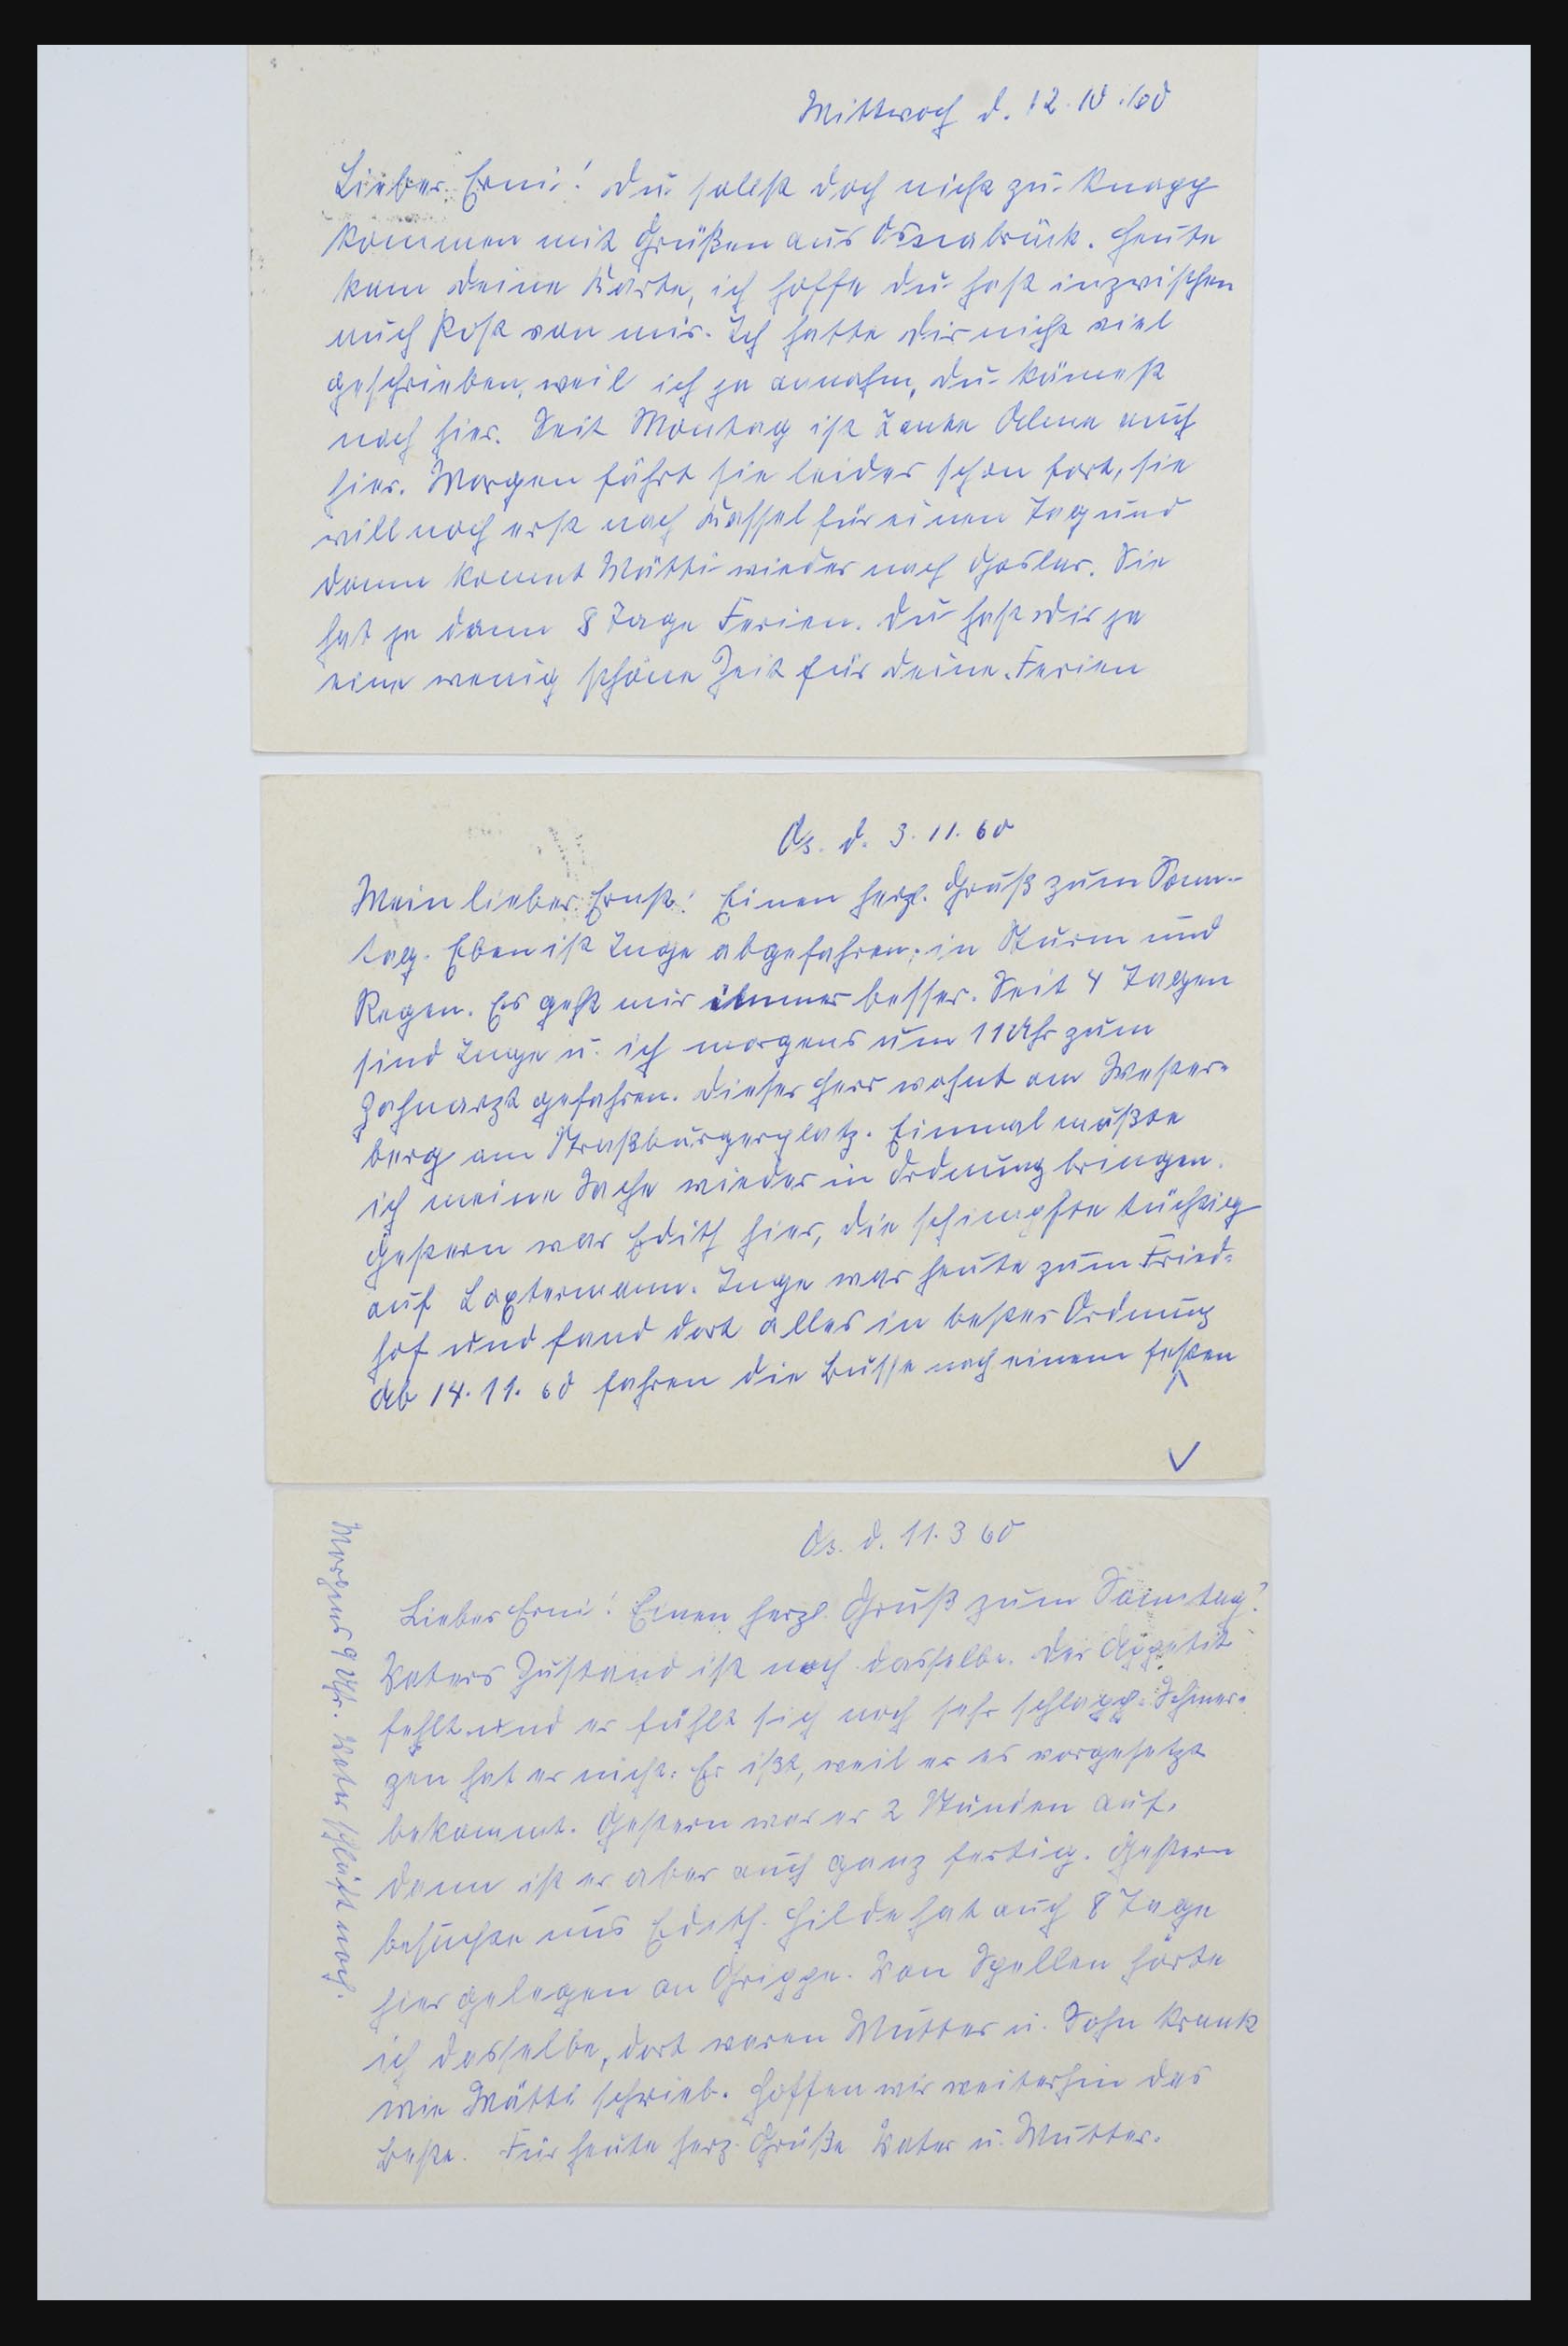 Mittwoch d. 12.10.60
Lieber Erni! Du sollst doch nicht zu knapp
kommen mit Grüßen aus Osnabrück. Heute
kam Deine Karte, ich hoffe Du hast inzwischen
auch Post von mir. Ich hatte Dir nicht viel
geschrieben, weil ich ja annahm, Du kämest
nach hier. Seit Montag ist Tante Alma auch
hier. Morgen fährt sie leider schon fort, sie
will noch erst nach Kassel für einen Tag und
dann kommt Mütti wieder nach Goslar. Sie
hat ja dann 8 Tage Ferien. Du hast Dir ja
eine wenig schöne Zeit für Deine Ferien
Os. d. 3.11.60
Mein lieber Ernst! Einen herzl. Gruß zum Sonn-
tag. Eben ist Inge abgefahren, in Sturm und
Regen. Es geht mir immer besser. Seit 4 Tagen
sind Inge u. ich morgens um 11 Uhr zum
Zahnarzt gefahren. Dieser Herr wohnt am Wester-
berg am Straßburgerplatz. Einmal mußte
ich meine Sache wieder in Ordnung bringen.
Gestern war Edith hier, die schimpfte tüchtig
auf Loxtermann. Inge war heute zum Fried-
hof und fand dort alles in bester Ordnung
Ab 14.11.60 fahren die Busse nach einem festen
Os. d. 11.3 60
Lieber Erni! Einen herzl. Gruß zum Sonntag!
Vaters Zustand ist noch dasselbe. Der Appetit
fehlt und er fühlt sich noch sehr schlapp. Schmer-
zen hat er nicht. Er ißt, weil er es vorgesetzt
bekommt. Gestern war er 2 Stunden auf,
dann ist er aber auch ganz fertig. Gestern
besuchte uns Edith. Hilde hat auch 8 Tage
hier gelegen an Grippe. Von Spellen hörte
ich dasselbe, dort waren Mutter u. Sohn krank
wie Mütti schrieb. Hoffen wir weiterhin das
Beste. Für heute herz. Grüße Vater u. Mutter.
Morgens 9 Uhr. Vater schläft noch.